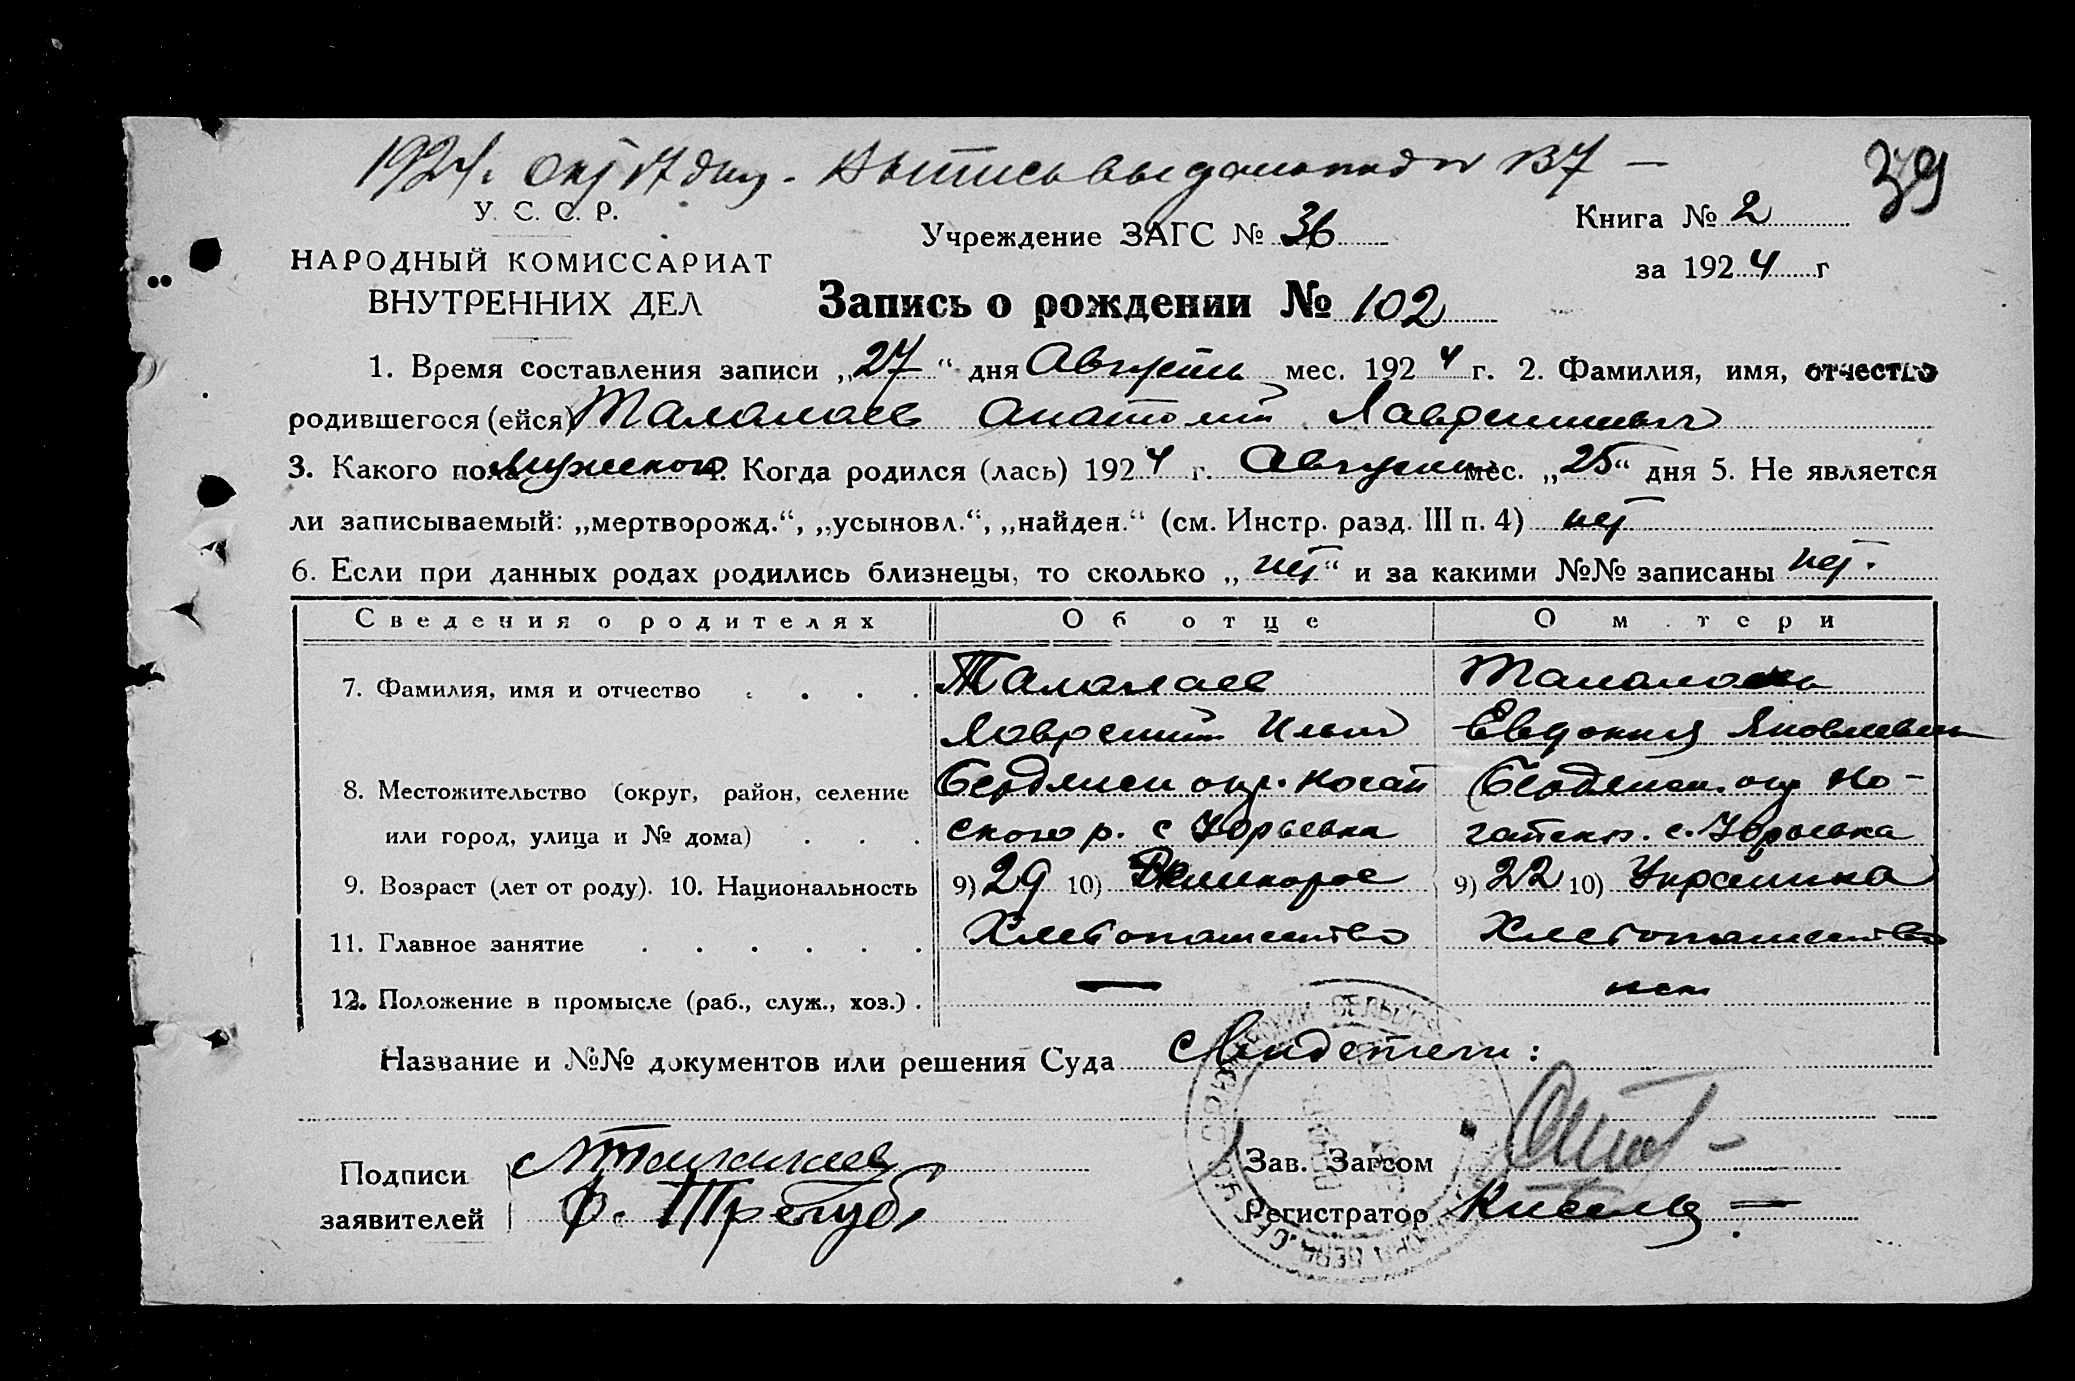 1924 г. окт 17 дня. Выпись выдана под № 137 —
39
У. С. С. Р.
НАРОДНЫЙ КОМИССАРИАТ
ВНУТРЕННИХ ДЕЛ
Учреждение ЗАГС № 36
Книга № 2
за 1924 г
Запись о рождении № 102
1. Время составления записи „27“ дня Августа мес. 1924 г. 2. Фамилия, имя, отчество
родившегося (ейся) Талалаев Анатолий Лаврентьевич
3. Какого пола Мужского 4. Когда родился (лась) 1924 г. Августа мес. „25“ дня 5. Не является
ли записываемый: „мертворожд.“, „усыновл.“, „найден.“ (см. Инстр. разд. III п. 4) нет
6. Если при данных родах родились близнецы, то сколько „нет“ и за какими №№ записаны нет.
Сведения о родителях Об отце О матери
7. Фамилия, имя и отчество . . . . Талалаев Талалаева
Лаврентий Ильич Евдокия Яковлевна
8. Местожительство (округ, район, селение Бердянск окр. Ногай Бердянск. окр Но-
или город, улица и № дома) . . . ского р. с Юрьевка гайск р. с. Юрьевка
9. Возраст (лет от роду). 10. Национальность 9) 29 10) Великорос 9) 22 10) Украинка
11. Главное занятие . . . . . . Хлебопашество Хлебопашество
12. Положение в промысле (раб., служ., хоз.) . — нет
Название и №№ документов или решения Суда Свидетели:
Подписи
заявителей
Л Талалаев
Ф. Трегуб
Зав. Загсом
Регистратор